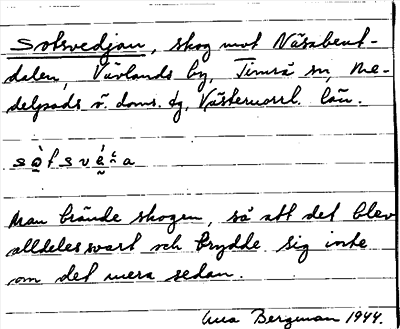 Sotsvedjan, skog mot Näsabent-
dalen, Vävlands by, Timrå sn, Me-
delpads ö. doms. tg, Västernorrl. län.
Man brände skogen, så att det blev
alldeles svart och brydde sig inte
om det mera sedan.
Bergman 1944.